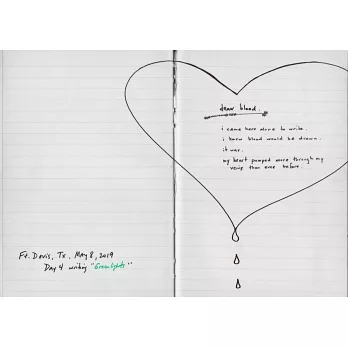 dear blood.
i came here alone to write.
i knew blood would be drawn.
it was.
my heart pumped more through my
veins than ever before.
Ft. Davis, Tx., May 8, 2019
Day 4 writing "Greenlights"